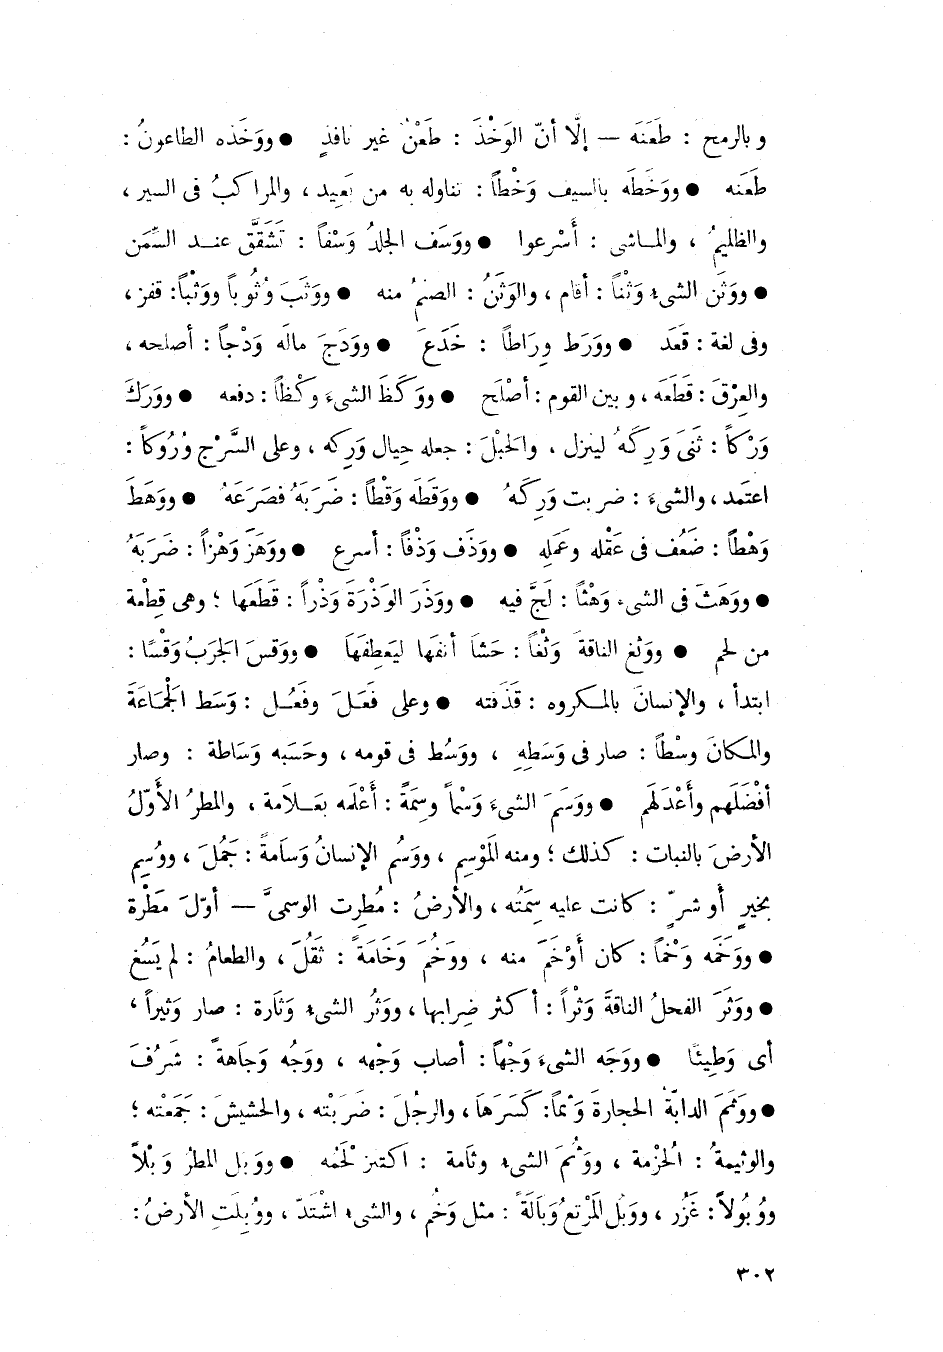 وبالرمح : طَعَنَه — إلّا أنّ الوَخْذَ : طَعْنٌ غير نافذٍ ● ووَخَذه الطاعونُ :
طَعَنه ● ووَخَطَه بالسيف وَخْطاً : تناوله به من بَعِيد ، والمراكبُ فى السير ،
والظليمُ ، والماشى : أَسْرعوا ● ووَسَف الجلدُ وَسْفاً : تَشَقَّق عند السِّمَن
● ووَثَن الشىء وَثْناً : أقام ، والوَثَنُ : الصنمُ منه ● ووَثَبَ وُثُوباً ووَثْباً : قفز ،
وفى لغة : قَعَد ● ووَرَط وِرَاطاً : خَدَعَ ● ووَدَجَ مالَه وَدْجاً : أصلحه ،
والعِرْقَ : قَطَعَه ، وبين القوم : أصْلَح ● ووَكَظَ الشىءَ وكْظاً : دفعه ● ووَرَكَ
وَرْكاً : ثَنَى وَرِكَهُ لينزل ، والحَبْلَ : جعله حِيال وَرِكه ، وعلى السَّرْج وُرُوكاً :
اعتَمد ، والشىءَ : ضربت وَرِكَهُ ● ووَقَطَه وَقْطاً : ضَرَبَهُ فصَرَعَهُ ● ووَهَطَ
وَهْطاً : ضَعُف فى عَقْله وعَمَلِهِ ● ووَذَف وَذْفاً : أسرع ● ووَهَزَ وَهْزاً : ضَرَبَهُ
● ووَهَثَ فى الشىء وَهْثاً : لَجَّ فيه ● ووَذَرَ الوَذْرَةَ وَذْراً : قَطَعَها ؛ وهى قِطْعة
من لحم ● ووَثَغ الناقةَ وَثْغاً : حَشَا أنفَها ليَعطِفَهَا ● ووَقسَ الجَرَبُ وَقْسًا :
ابتدأ ، والإنسانَ بالمكروه : قَذَفته ● وعلى فَعَلَ وفَعُل : وَسَط الجْمَاعَةَ
والمكانَ وسْطاً : صار فى وَسَطِهِ ، ووَسُط فى قومه ، وحَسَبه وَسَاطة : وصار
أفْضَلَهم وأَعْدَلَهم ● ووَسَمَ الشىءَ وَسْماً وسِمَةً : أَعْلَمه بعَلامة ، والمطرُ الأَوّلُ
الأرضَ بالنبات : كذلك ؛ ومنه المَوْسِم ، ووَسُم الإنسانُ وَسامةً : جَمُلَ ، ووُسِم
بخيرٍ أو شرٍّ : كانت عليه سِمَتُه ، والأرضُ : مُطِرت الوسمىَّ — أوّلَ مَطْرة
● ووَخَمَه وَخْماً : كان أَوْخَمَ منه ، ووَخُمَ وَخَامَةً : ثَقُلَ ، والطعامُ : لم يَسُغ
● ووَثَرَ الفحلُ الناقةَ وَثْراً : أكثر ضِرابها ، ووَثُر الشىء وَثَارة : صار وَثيراً ،
أى وَطِيئًا ● ووَجَه الشىءَ وَجْهاً : أصاب وَجْهه ، ووَجُه وَجَاهةً : شَرُفَ
● ووَثَمَ الدابّةُ الحجارةَ وَثْماً : كَسَرَهَا ، والرجُلَ : ضَرَبْته ، والحشيشَ : جَمَعْته ؛
والوثيمةُ : الحُزْمة ، ووَثُمَ الشىء وثامة : اكتنز لَحْمُه ● ووَبل المطرُ وَبْلاً
ووُبُولاً : غَزُر ، ووَبُل المَرْتعُ وَبَالَةً : مثل وَخُم ، والشىء اشْتَدّ ، ووُبِلَتِ الأرضُ :
٣٠٢